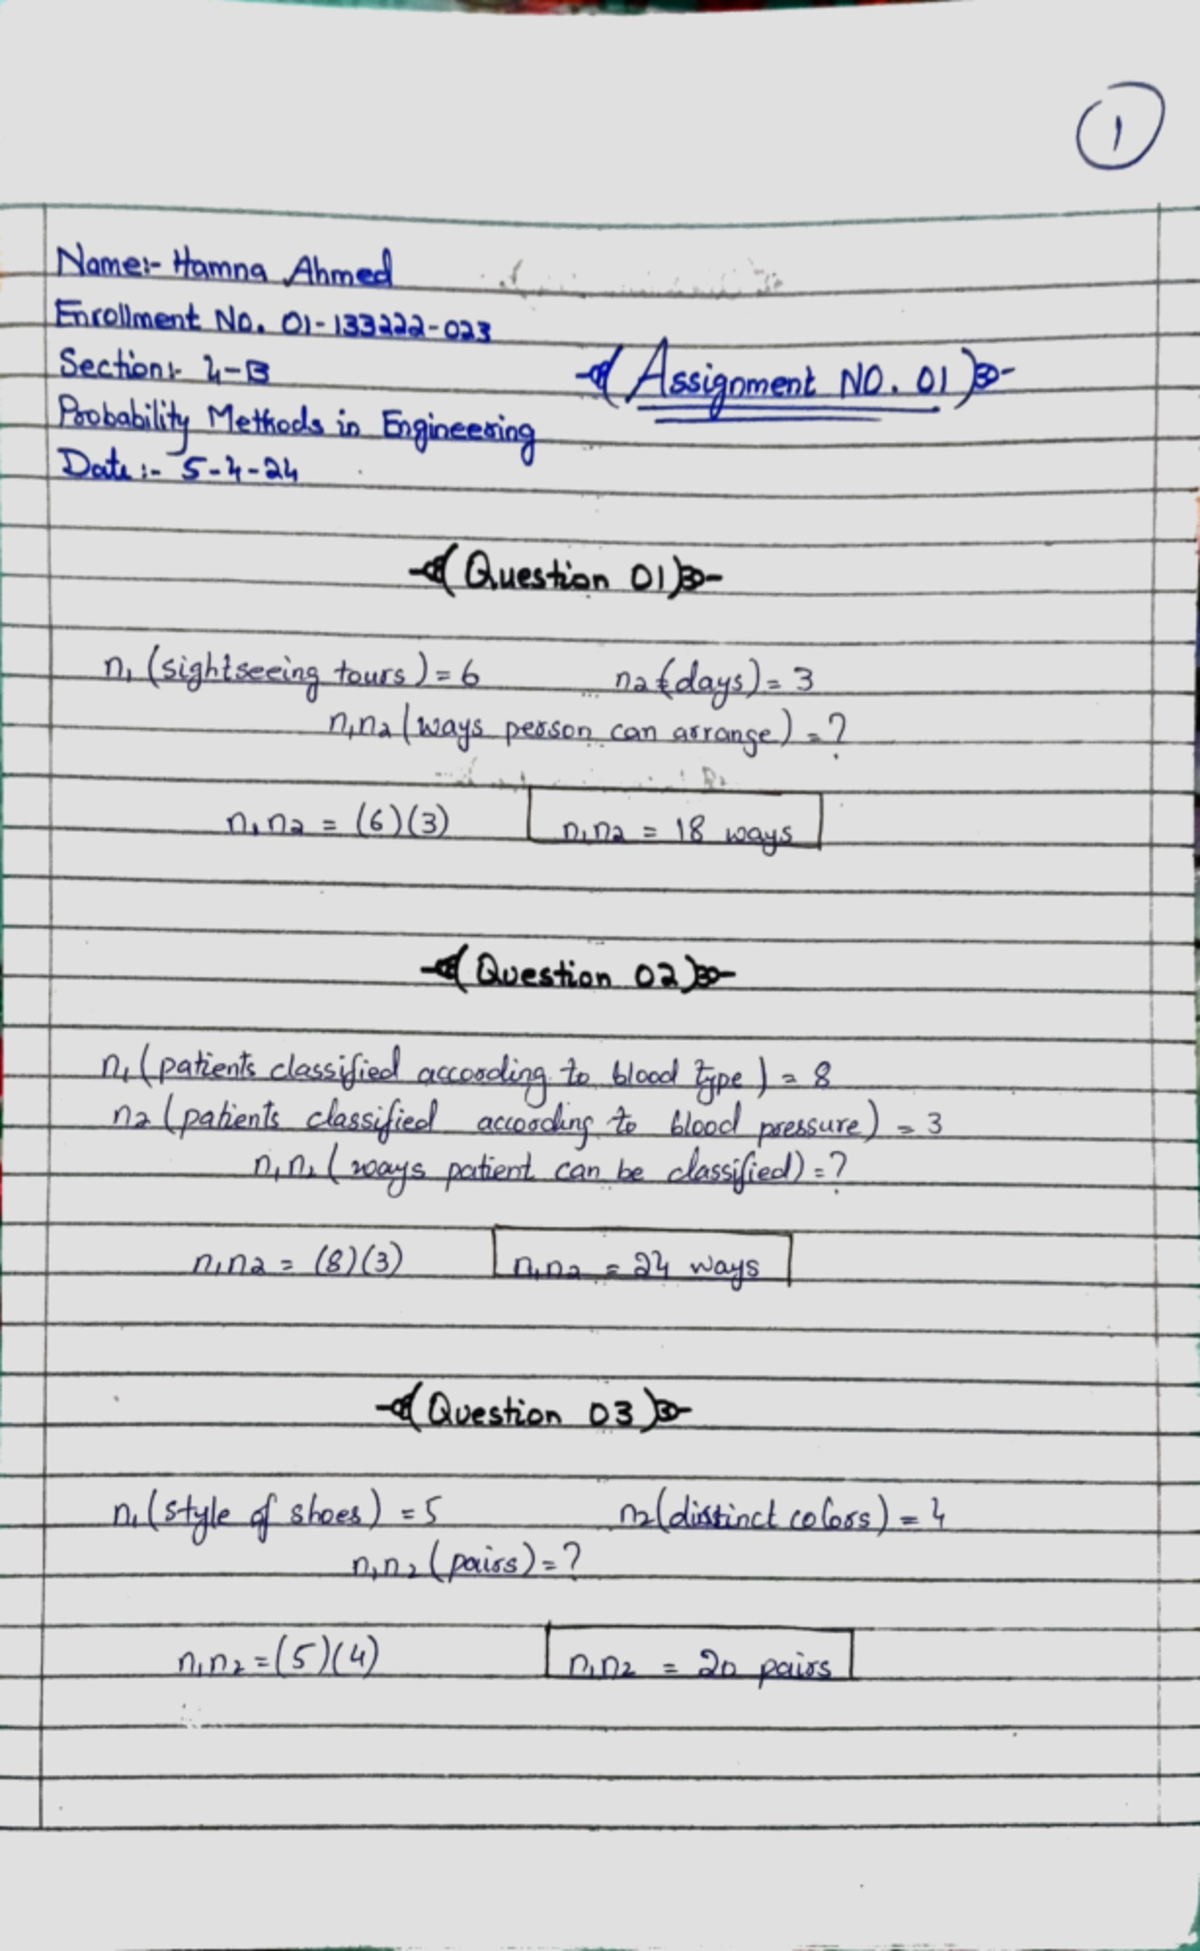 1
Name:- Hamna Ahmed
Enrollment No. 01-133222-023
Section:- 4-B
Assignment NO. 01
Probability Methods in Engineering
Date:- 5-4-24
Question 01
n₁ (sightseeing tours) = 6 n₂ (days) = 3
n₁n₂ (ways person can arrange) = ?
n₁n₂ = (6)(3) n₁n₂ = 18 ways
Question 02
n₁ (patients classified according to blood type) = 8
n₂ (patients classified according to blood pressure) = 3
n₁n₂ (ways patient can be classified) = ?
n₁n₂ = (8)(3) n₁n₂ = 24 ways
Question 03
n₁ (style of shoes) = 5 n₂ (distinct colors) = 4
n₁n₂ (pairs) = ?
n₁n₂ = (5)(4) n₁n₂ = 20 pairs